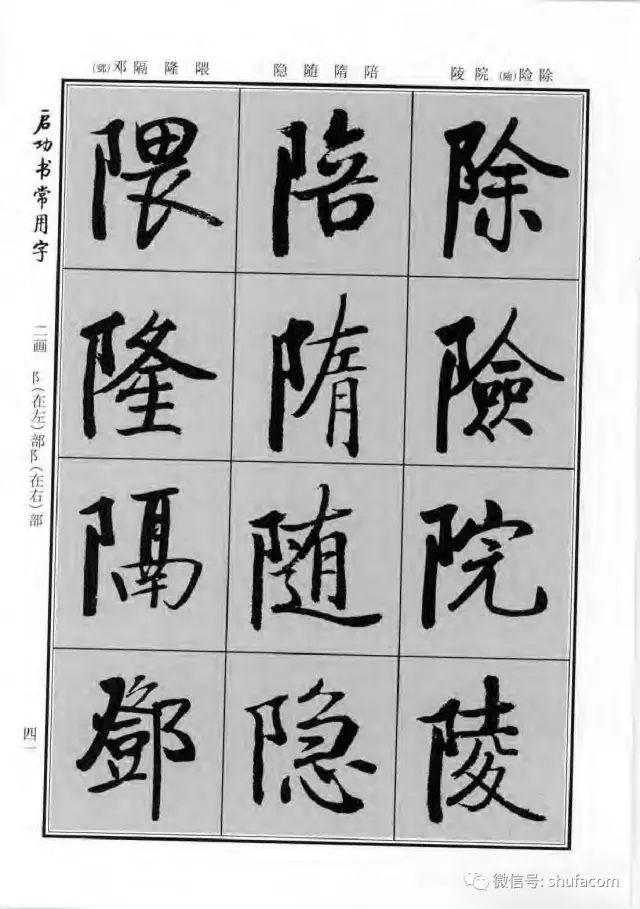 (鄧)邓隔隆隈 隐随隋陪 陵院(險)险除
除
險
院
陵
陪
隋
随
隐
隈
隆
隔
鄧
启功书常用字
二画 阝(在左)部阝(在右)部
四一
微信号: shufacom